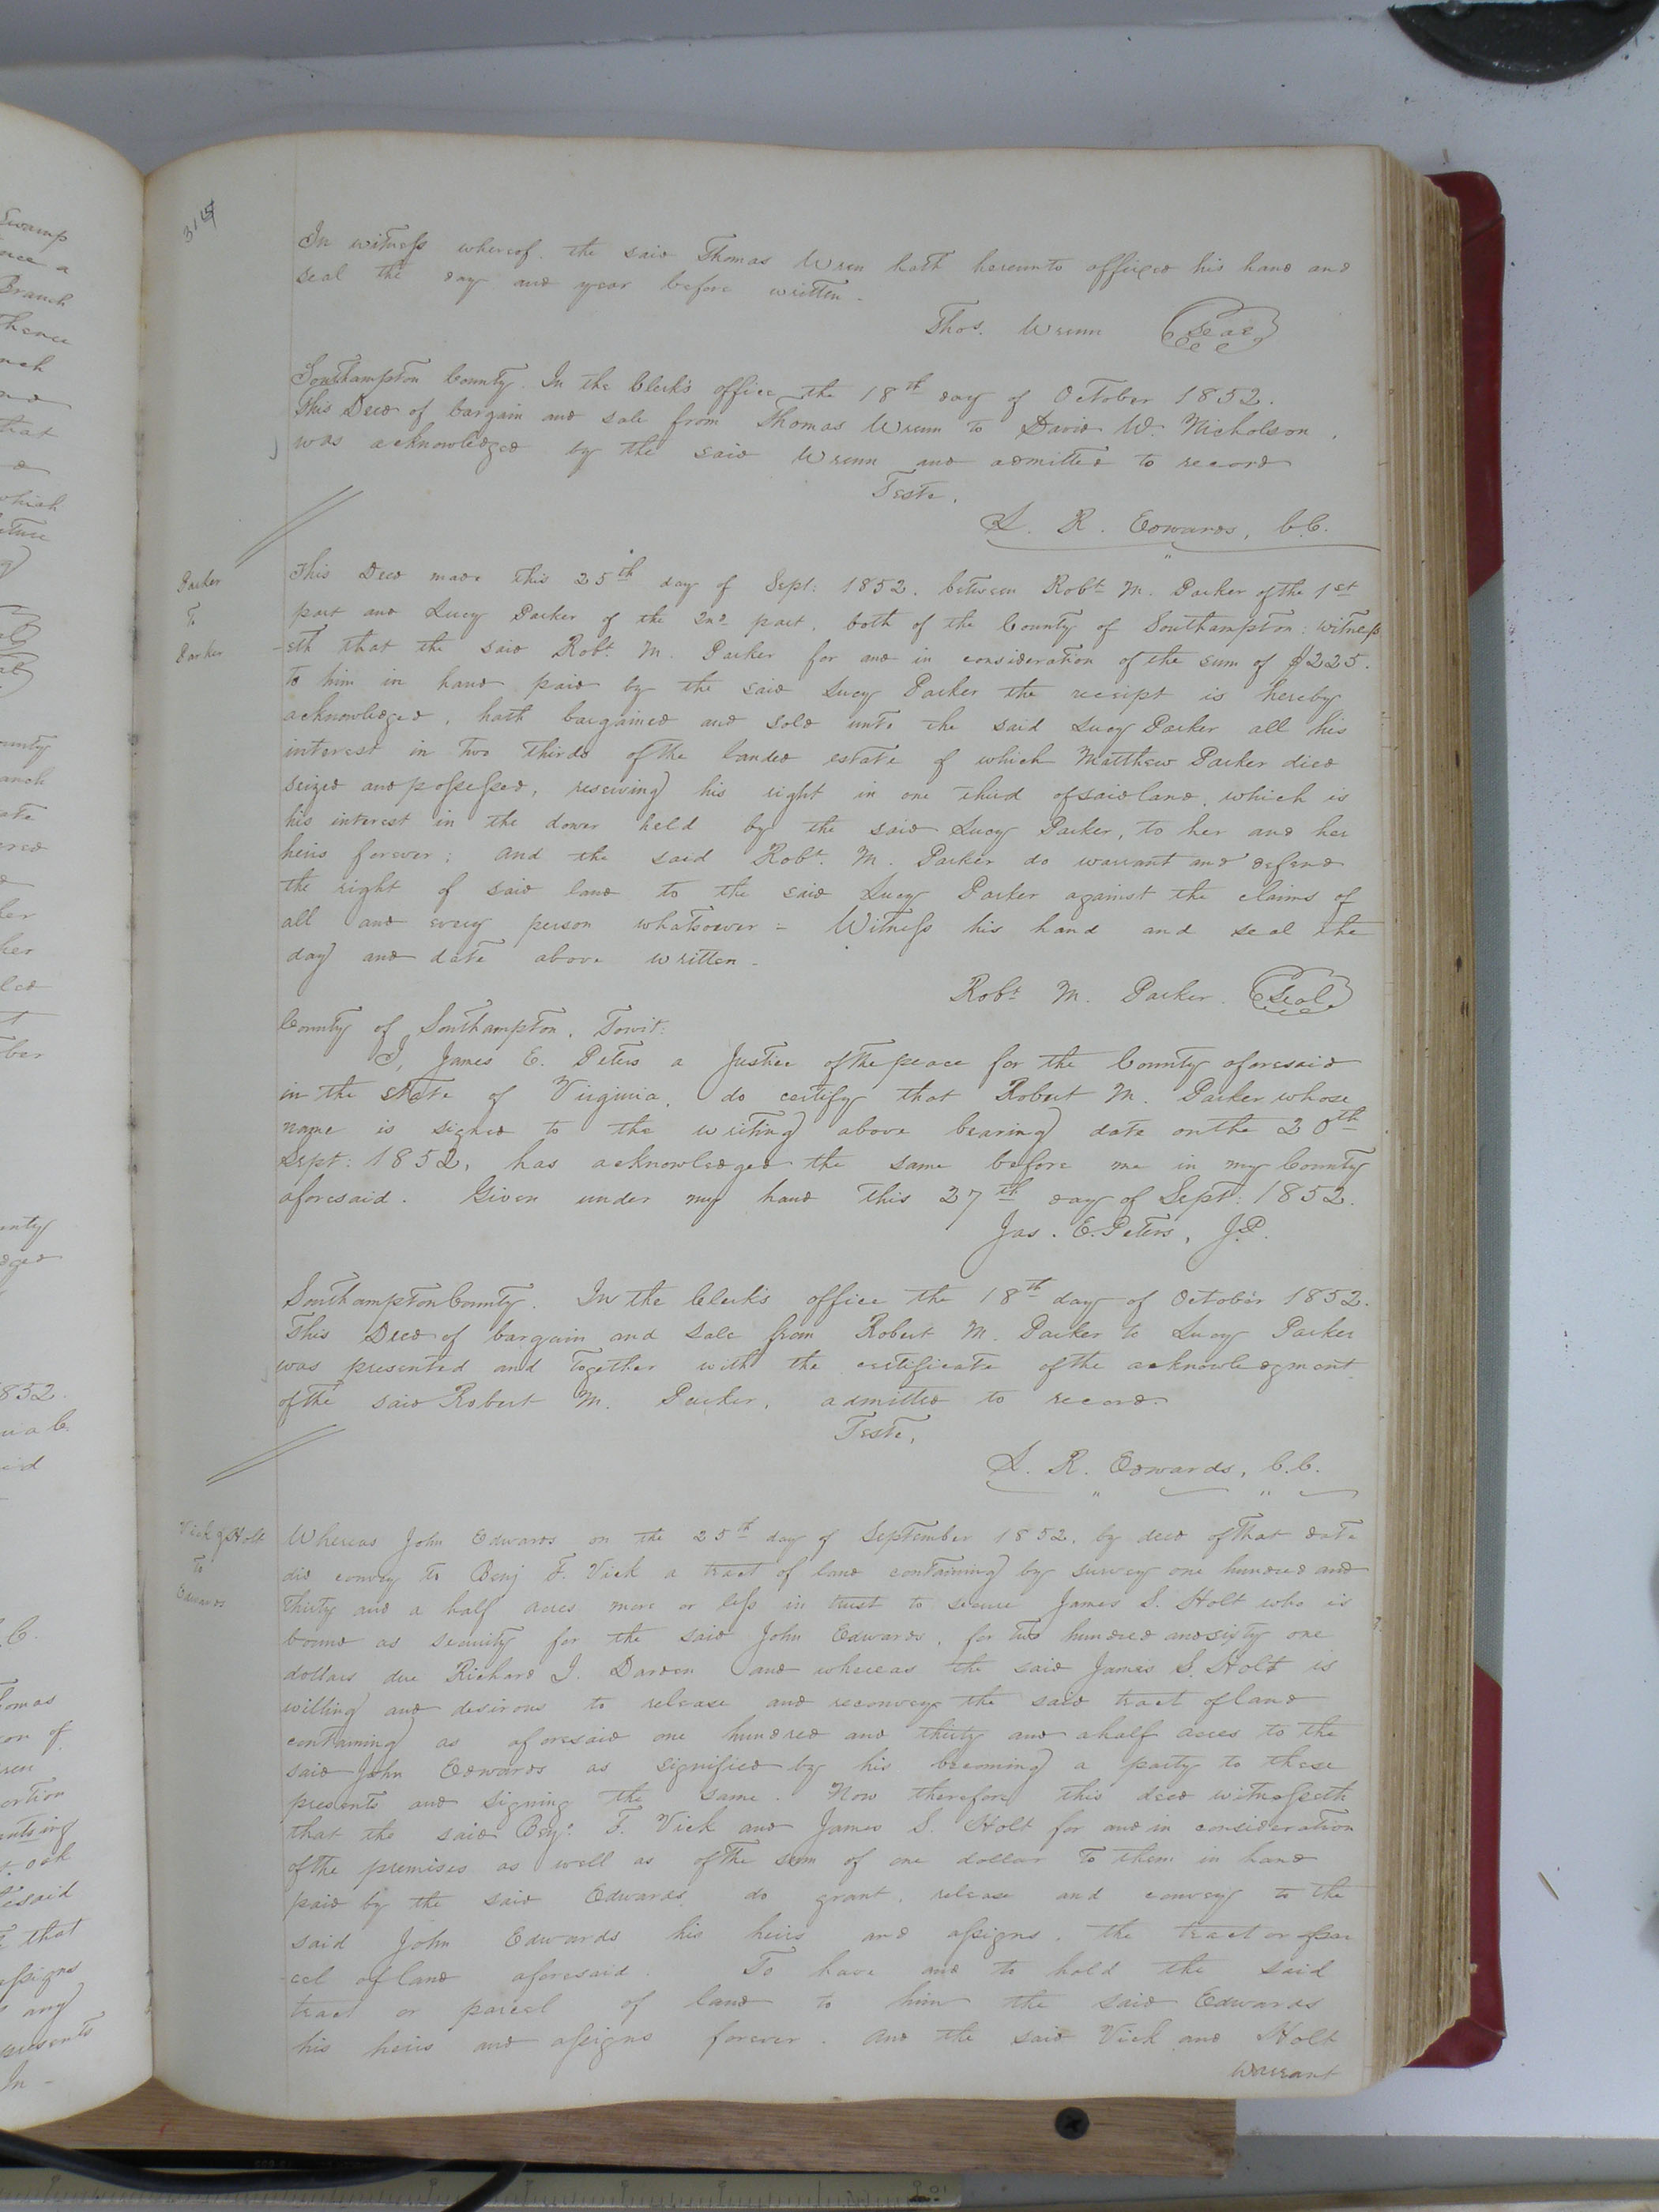 In witness whereof the said Thomas Wren hath hereunto affixed his hand and
seal the day and year before written.
Thos. Wrenn Seal
Southampton County. In the Clerk's office the 18th day of October 1852.
This Deed of bargain and sale from Thomas Wrenn to David W. Nicholson,
was acknowledged by the said Wrenn and admitted to record
Teste,
L. R. Edwards, C.C.
Parker
To
Parker
This Deed made this 25th day of Sept: 1852. between Robt M. Parker of the 1st
part and Lucy Parker of the 2nd part, both of the County of Southampton: witness
-eth that the said Robt. M. Parker for and in consideration of the sum of $225.
to him in hand paid by the said Lucy Parker the receipt is hereby
acknowledged, hath bargained and sold unto the said Lucy Parker all his
interest in two thirds of the landed estate of which Matthew Parker died
seized and possessed, reserving his right in one third of said land, which is
his interest in the dower held by the said Lucy Parker, to her and her
heirs forever; and the said Robt. M. Parker do warrant and defend
the right of said land to the said Lucy Parker against the claims of
all and every person whatsoever = Witness his hand and seal the
day and date above written.
Robt M. Parker. Seal
County of Southampton, Towit:
I, James E. Peters a Justice of the peace for the County aforesaid
in the State of Virginia, do certify that Robert M. Parker whose
name is signed to the writing above bearing date on the 20th
Sept: 1852, has acknowledged the same before me in my County
aforesaid. Given under my hand this 27th day of Sept: 1852.
Jas. E. Peters, J.P.
Southampton County. In the Clerk's office the 18th day of October 1852.
This Deed of bargain and sale from Robert M. Parker to Lucy Parker
was presented and together with the certificate of the acknowledgment
of the said Robert M. Parker, admitted to record.
Teste,
L. R. Edwards, C.C.
Vick & Holt
To
Edwards
Whereas John Edwards on the 25th day of September 1852, by deed of that date
did convey to Benj F. Vick a tract of land containing by survey one hundred and
thirty and a half acres more or less in trust to secure James S. Holt who is
bound as security for the said John Edwards, for two hundred and sixty one
dollars due Richard J. Darden and whereas the said James S. Holt is
willing and desirous to release and reconvey the said tract of land
containing as aforesaid one hundred and thirty and a half acres to the
said John Edwards as signified by his becoming a party to these
presents and signing the same. Now therefore this deed witnesseth
that the said Benj: F. Vick and James S. Holt for and in consideration
of the premises as well as of the sum of one dollar to them in hand
paid by the said Edwards do grant, release and convey to the
said John Edwards his heirs and assigns, the tract or par
-cel of land aforesaid. To have and to hold the said
tract or parcel of land to him the said Edwards
his heirs and assigns forever. And the said Vick and Holt
warrant